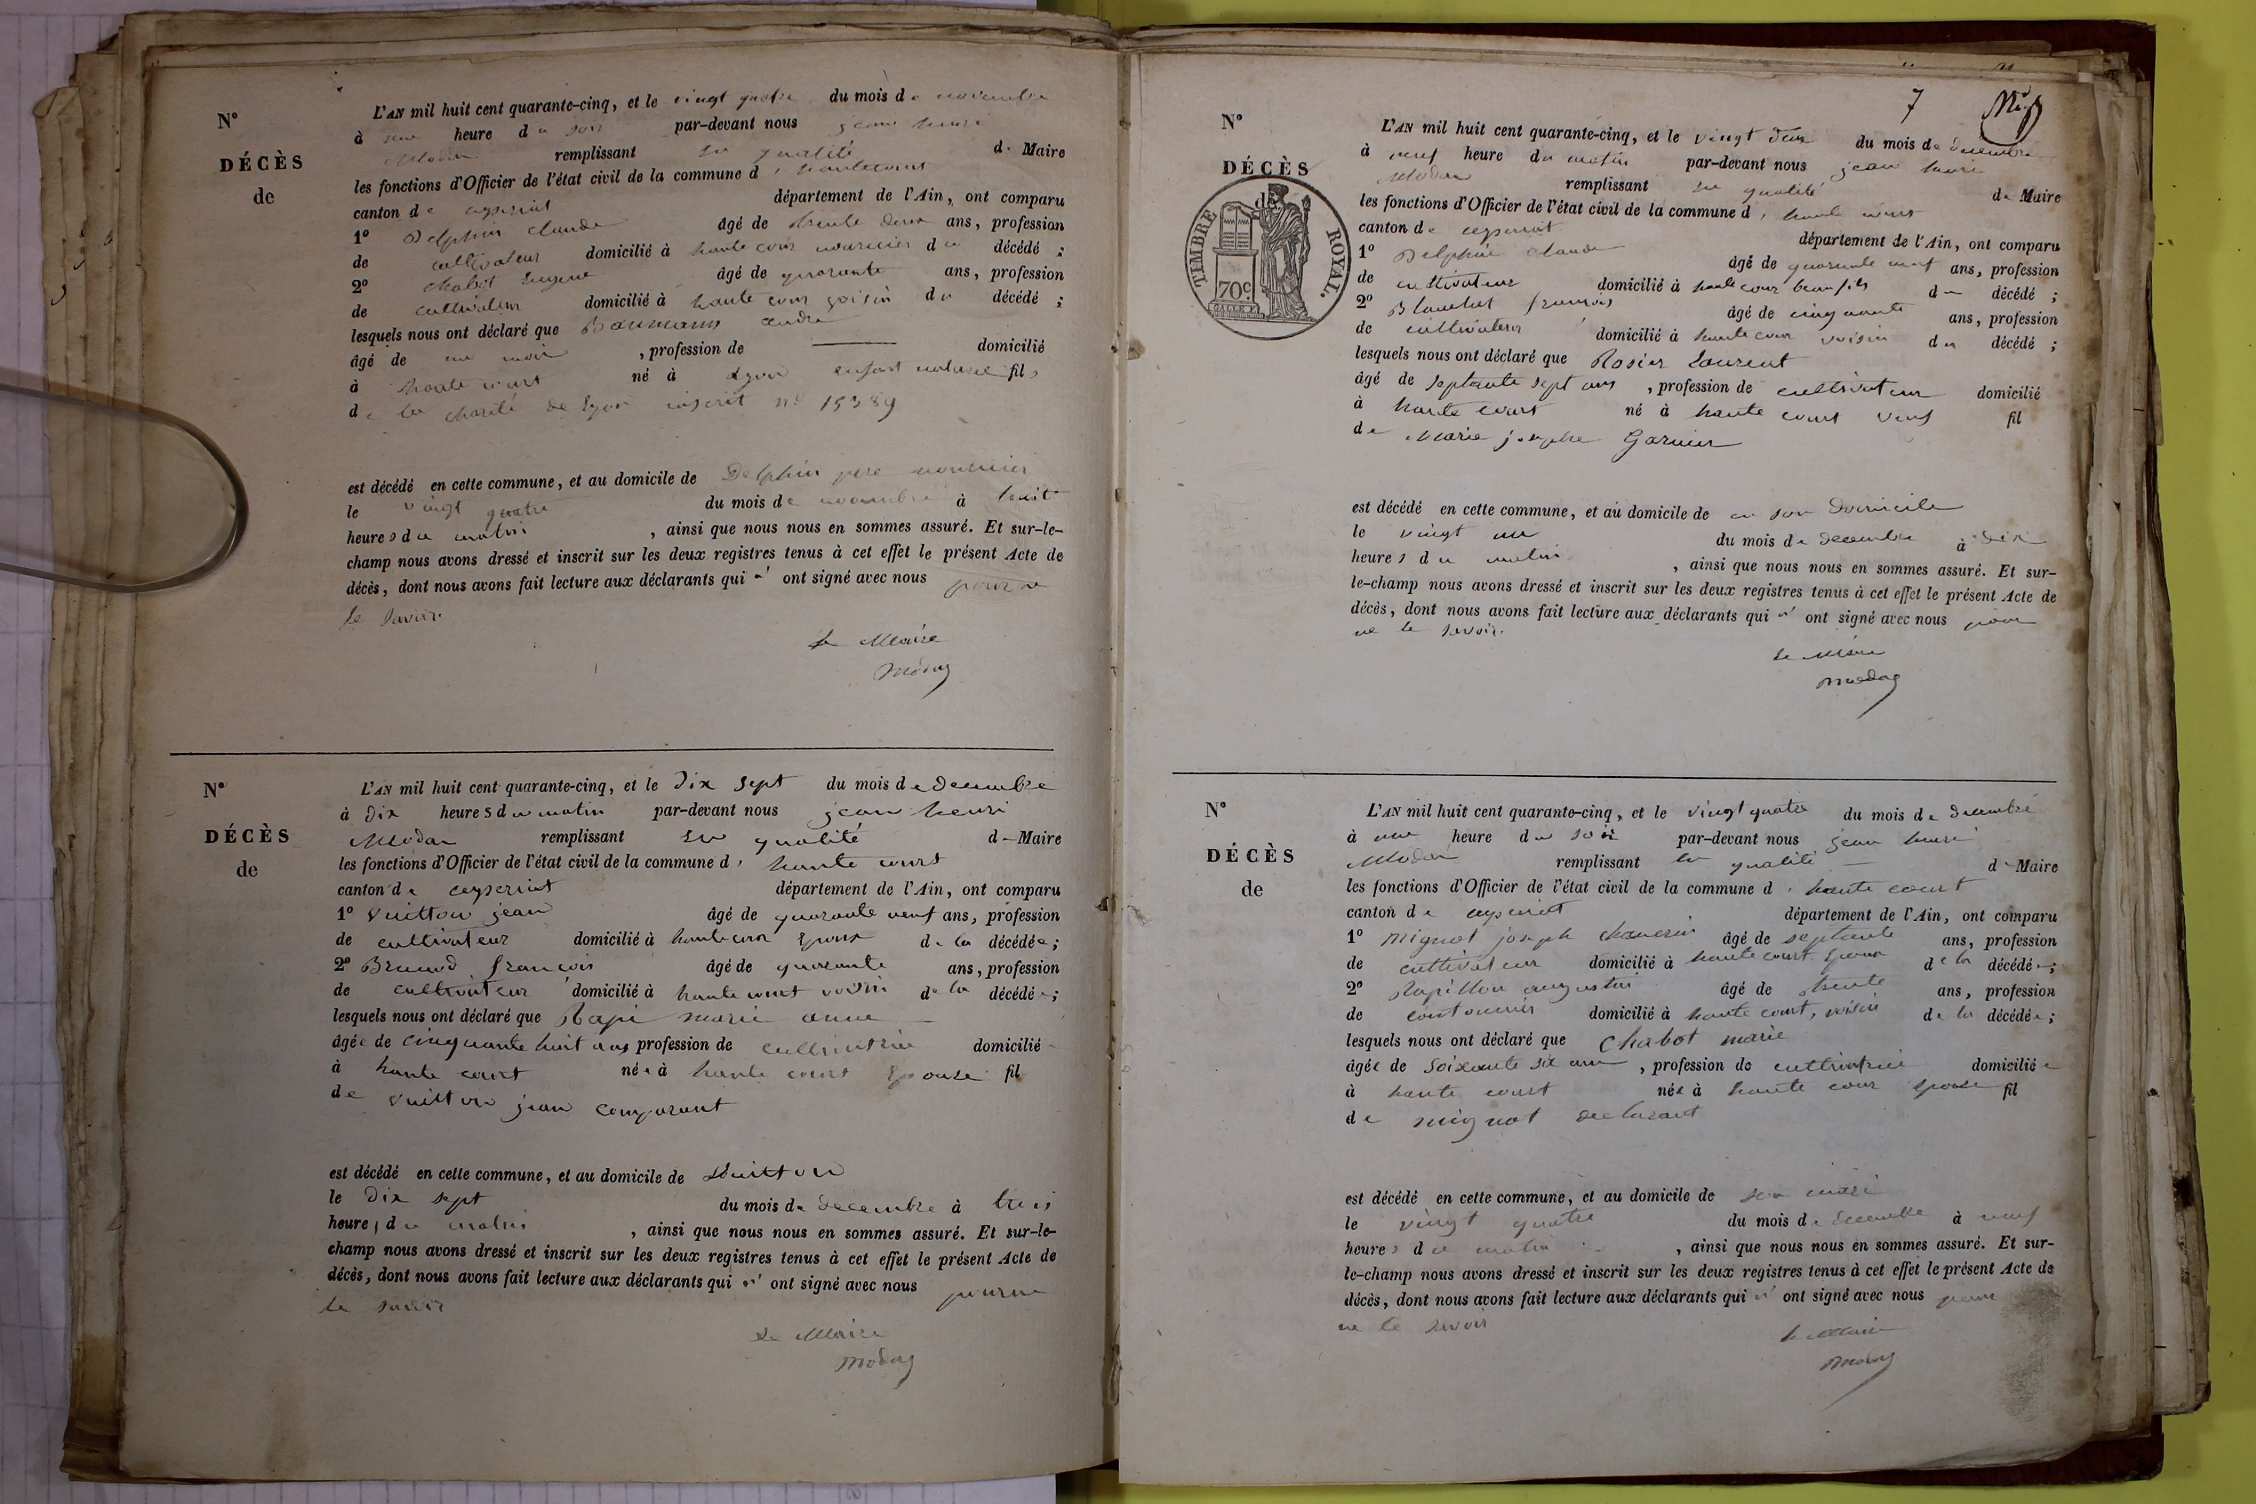 N°
DÉCÈS
de
L'AN mil huit cent quarante-cinq, et le vingt quatre du mois de novembre
à une heure du soir par-devant nous jean henri
Modas remplissant en qualité de Maire
les fonctions d'Officier de l'état civil de la commune d'hautecourt
canton de ceyseriat département de l'Ain, ont comparu
1° Delphin claude âgé de trente deux ans, profession
de cultivateur domicilié à haute cour nouricier du décédé ;
2° chabot âgé de quarante ans, profession
de cultivateur domicilié à haute cour voisin du décédé ;
lesquels nous ont déclaré que andre
âgé de un mois , profession de ——— domicilié
à haute court né à Lyon enfant naturel fils
de la charité de Lyon inscrit n° 15389
est décédé en cette commune, et au domicile de Delphin pere nourricier
le vingt quatre du mois de novembre à huit
heures du matin , ainsi que nous nous en sommes assuré. Et sur-le-
champ nous avons dressé et inscrit sur les deux registres tenus à cet effet le présent Acte de
décès, dont nous avons fait lecture aux déclarants qui n' ont signé avec nous pour ne
le savoir
le Maire
Modas
N°
DÉCÈS
de
L'AN mil huit cent quarante-cinq, et le Dix sept du mois de decembre
à Dix heures du matin par-devant nous jean henri
Modas remplissant en qualité de Maire
les fonctions d'Officier de l'état civil de la commune d'haute court
canton de ceyseriat département de l'Ain, ont comparu
1° Vuitton jean âgé de quarante neuf ans, profession
de cultivateur domicilié à haute cour Epoux de la décédée ;
2° Brunod françois âgé de quarante ans, profession
de cultivateur domicilié à haute court voisin de la décédée ;
lesquels nous ont déclaré que Rapi marie anne
âgée de cinquante huit ans profession de cultivatrice domiciliée
à haute court née à haute court Epouse fil
de Vuitton jean comparant
est décédé en cette commune, et au domicile de Vuitton
le Dix sept du mois de decembre à trois
heures du matin , ainsi que nous nous en sommes assuré. Et sur-le-
champ nous avons dressé et inscrit sur les deux registres tenus à cet effet le présent Acte de
décès, dont nous avons fait lecture aux déclarants qui n' ont signé avec nous pour ne
le savoir
Le Maire
Modas
7
N°
DÉCÈS
de
TIMBRE ROYAL.
70c.
L'AN mil huit cent quarante-cinq, et le vingt deux du mois de decembre
à neuf heure du matin par-devant nous jean henri
Modas remplissant en qualité de Maire
les fonctions d'Officier de l'état civil de la commune d'haute court
canton de ceyseriat département de l'Ain, ont comparu
1° Delphin claude âgé de quarante neuf ans, profession
de cultivateur domicilié à haute cour beau fils du décédé ;
2° Blanchet françois âgé de cinquante ans, profession
de cultivateur domicilié à haute cour voisin du décédé ;
lesquels nous ont déclaré que Rosier Laurent
âgé de septante sept ans , profession de cultivateur domicilié
à haute court né à haute court veuf fil
de Marie josephe Garnier
est décédé en cette commune, et au domicile de en son Domicile
le vingt un du mois de decembre à dix
heures du matin , ainsi que nous nous en sommes assuré. Et sur-
le-champ nous avons dressé et inscrit sur les deux registres tenus à cet effet le présent Acte de
décès, dont nous avons fait lecture aux déclarants qui n' ont signé avec nous pour
ne le savoir.
Le Maire
Modas
N°
DÉCÈS
de
L'AN mil huit cent quarante-cinq, et le vingt quatre du mois de decembre
à une heure du soir par-devant nous jean henri
Modas remplissant en qualité de Maire
les fonctions d'Officier de l'état civil de la commune d'haute court
canton de ceyseriat département de l'Ain, ont comparu
1° mignot joseph âgé de septante ans, profession
de cultivateur domicilié à haute court Epoux de la décédée ;
2° Papillon augustin âgé de trente ans, profession
de domicilié à haute court, voisin de la décédée ;
lesquels nous ont déclaré que Chabot marie
âgée de soixante six ans , profession de cultivatrice domiciliée
à haute court née à haute cour epouse fil
de mignot declarant
est décédé en cette commune, et au domicile de son mari
le vingt quatre du mois de decembre à neuf
heures du matin , ainsi que nous nous en sommes assuré. Et sur-
le-champ nous avons dressé et inscrit sur les deux registres tenus à cet effet le présent Acte de
décès, dont nous avons fait lecture aux déclarants qui n' ont signé avec nous pour
ne le savoir
le Maire
Modas